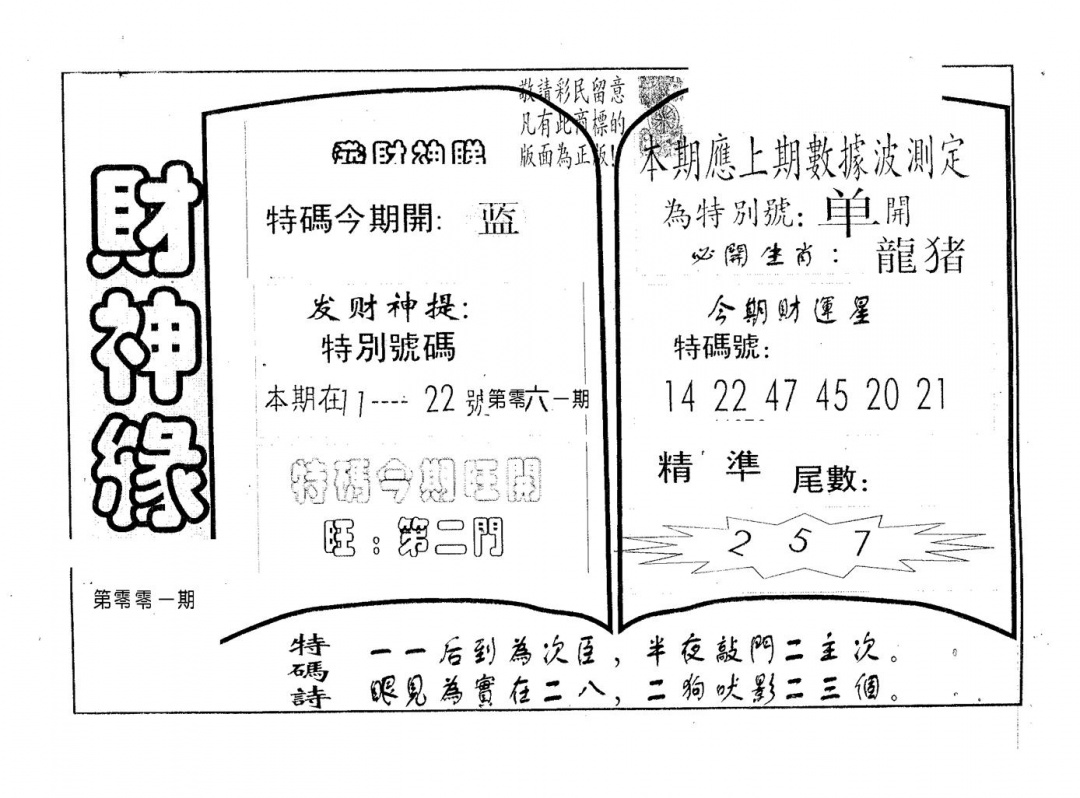 財神緣
第零零一期
敬請彩民留意
凡有此商標的
版面為正版!
特碼今期開: 蓝
发财神提:
特別號碼
本期在11----22號第零六一期
特碼今期旺開
旺:第二門
本期應上期數據波測定
為特別號:单開
必開生肖:龍猪
今期財運星
特碼號:
14 22 47 45 20 21
精 準 尾數:
2 5 7
特碼詩
一一后到為次臣,半夜敲門二主次。
眼見為實在二八,二狗吠影二三個。